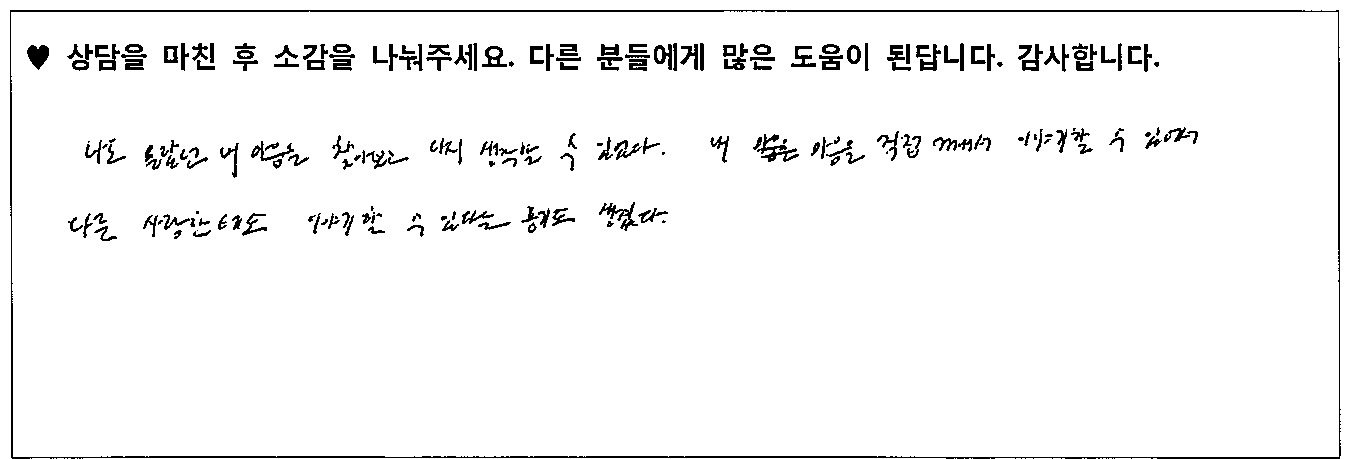 ♥ 상담을 마친 후 소감을 나눠주세요. 다른 분들에게 많은 도움이 된답니다. 감사합니다.
나도 몰랐던 내 마음을 찾아보고 다시 생각할 수 있었다. 내 마음을 직접 이야기할 수 있어서
다른 사람한테도 이야기할 수 있다는 용기도 생겼다.